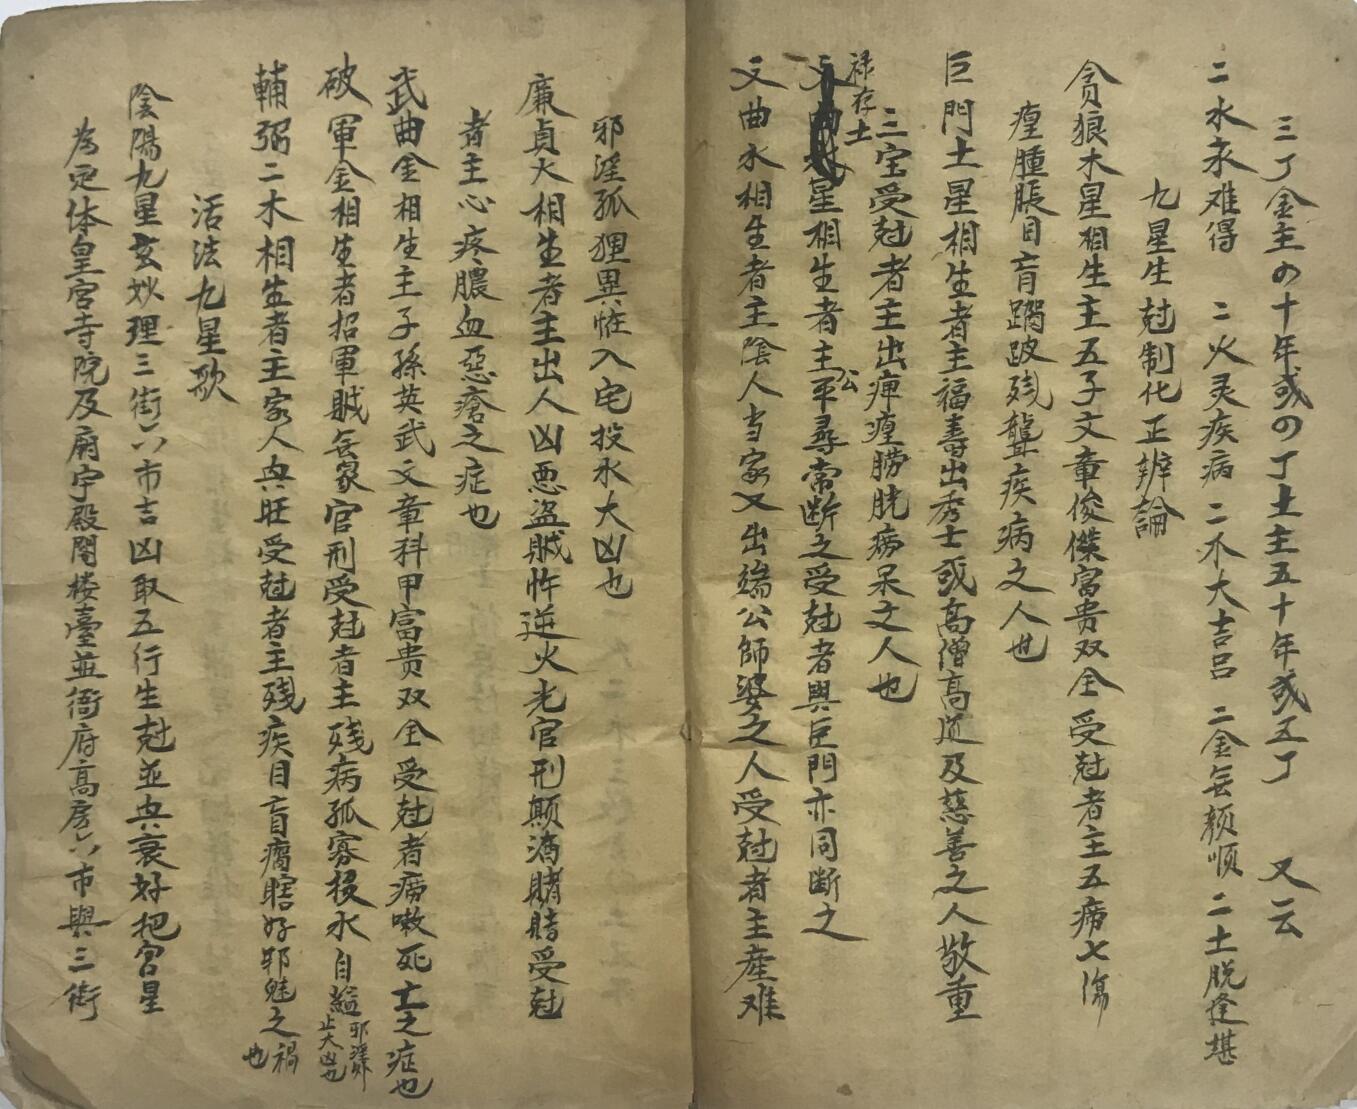 三丁金主四十年或四丁土主五十年或五丁　又云
二水永难得　二火灵疾病　二木大吉昌　二金無頼順　二土脱逢堪
九星生尅制化正辨論
贪狼木星相生主五子文章俊傑富贵双全受尅者主五痨七傷
瘇腫脹目盲蹋跛残聾疾病之人也
巨門土星相生者主福壽出秀士或高僧高道及慈善之人敬重
三宝受尅者主出痺瘇膀胱痨呆之人也
禄存土星相生者主平公尋常断之受尅者與巨門亦同断之
文曲水相生者主陰人当家又出端公師婆之人受尅者主産难
邪淫孤狸異怪入宅投水大凶也
廉貞火相生者主出人凶悪盗贼忤逆火光官刑颠酒賭賻受尅
者主心疼膿血惡瘡之症也
武曲金相生主子孫英武文章科甲富贵双全受尅者痨嗽死亡之症也
破軍金相生者招軍賊無家官刑受尅者主残病孤寡投水自縊邪淫外止大凶也
輔弼二木相生者主家人興旺受尅者主残疾目盲瘸瞎好邪魅之禍也
活法九星歌
陰陽九星玄妙理三街六市吉凶取五行生尅並興衰好把宮星
為定体皇宮寺院及廟宇殿閣楼臺並衙府高房六市與三街